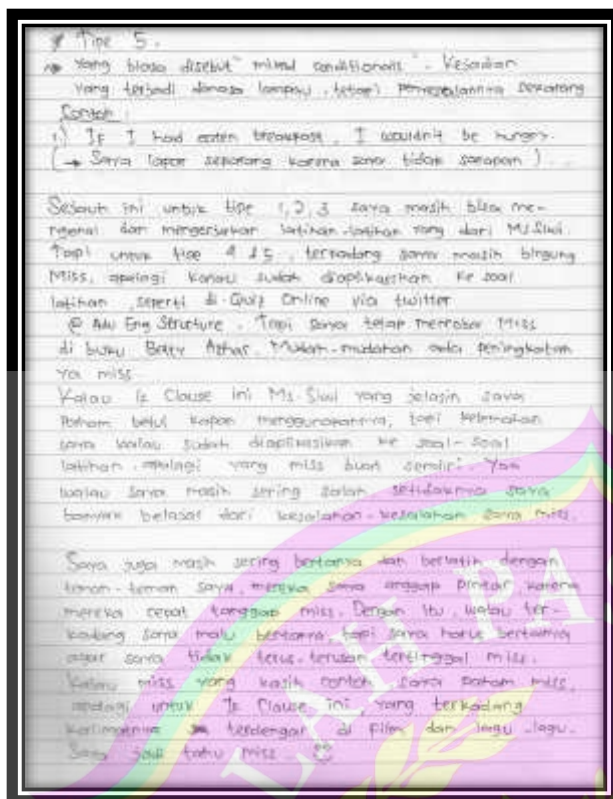 * Tipe 5.
→ Yang biasa disebut "mixed conditionals". Kejadian
yang terjadi dimasa lampau, tetapi penyesalannya sekarang
Contoh :
1.) If I had eaten breakfast, I wouldn't be hungry.
(→ Saya lapar sekarang karena saya tidak sarapan)..
Sejauh ini untuk tipe 1, 2, 3 saya masih bisa me-
ngenal dan mengerjakan latihan-latihan yang dari Ms.Siwi.
Tapi untuk tipe 4 & 5, terkadang saya masih bingung
Miss, apalagi kalau sudah diaplikasikan ke soal
latihan, seperti di Quiz Online via twitter
@ Adv Eng Structure. Tapi saya tetap mencoba Miss
di buku Betty Azhar. Mudah-mudahan ada peningkatan
ya miss
Kalau If Clause ini Ms.Siwi yang jelasin saya
Paham betul kapan menggunakannya, tapi kelemahan
saya kalau sudah diaplikasikan ke soal-soal
latihan, apalagi yang miss buat sendiri. Yah
walau saya masih sering salah setidaknya saya
banyak belajar dari kesalahan-kesalahan saya miss.
Saya juga masih sering bertanya dan berlatih dengan
teman-teman saya, mereka saya anggap pintar, karena
mereka cepat tanggap miss. Dengan itu, walau ter-
kadang saya malu bertanya, tapi saya harus bertanya
agar saya tidak terus-terusan tertinggal miss.
Kalau miss yang kasih contoh saya paham miss,
apalagi untuk If Clause ini, yang terkadang
kalimatnya terdengar di film dan lagu-lagu.
Saya jadi tahu miss.
LAH PA